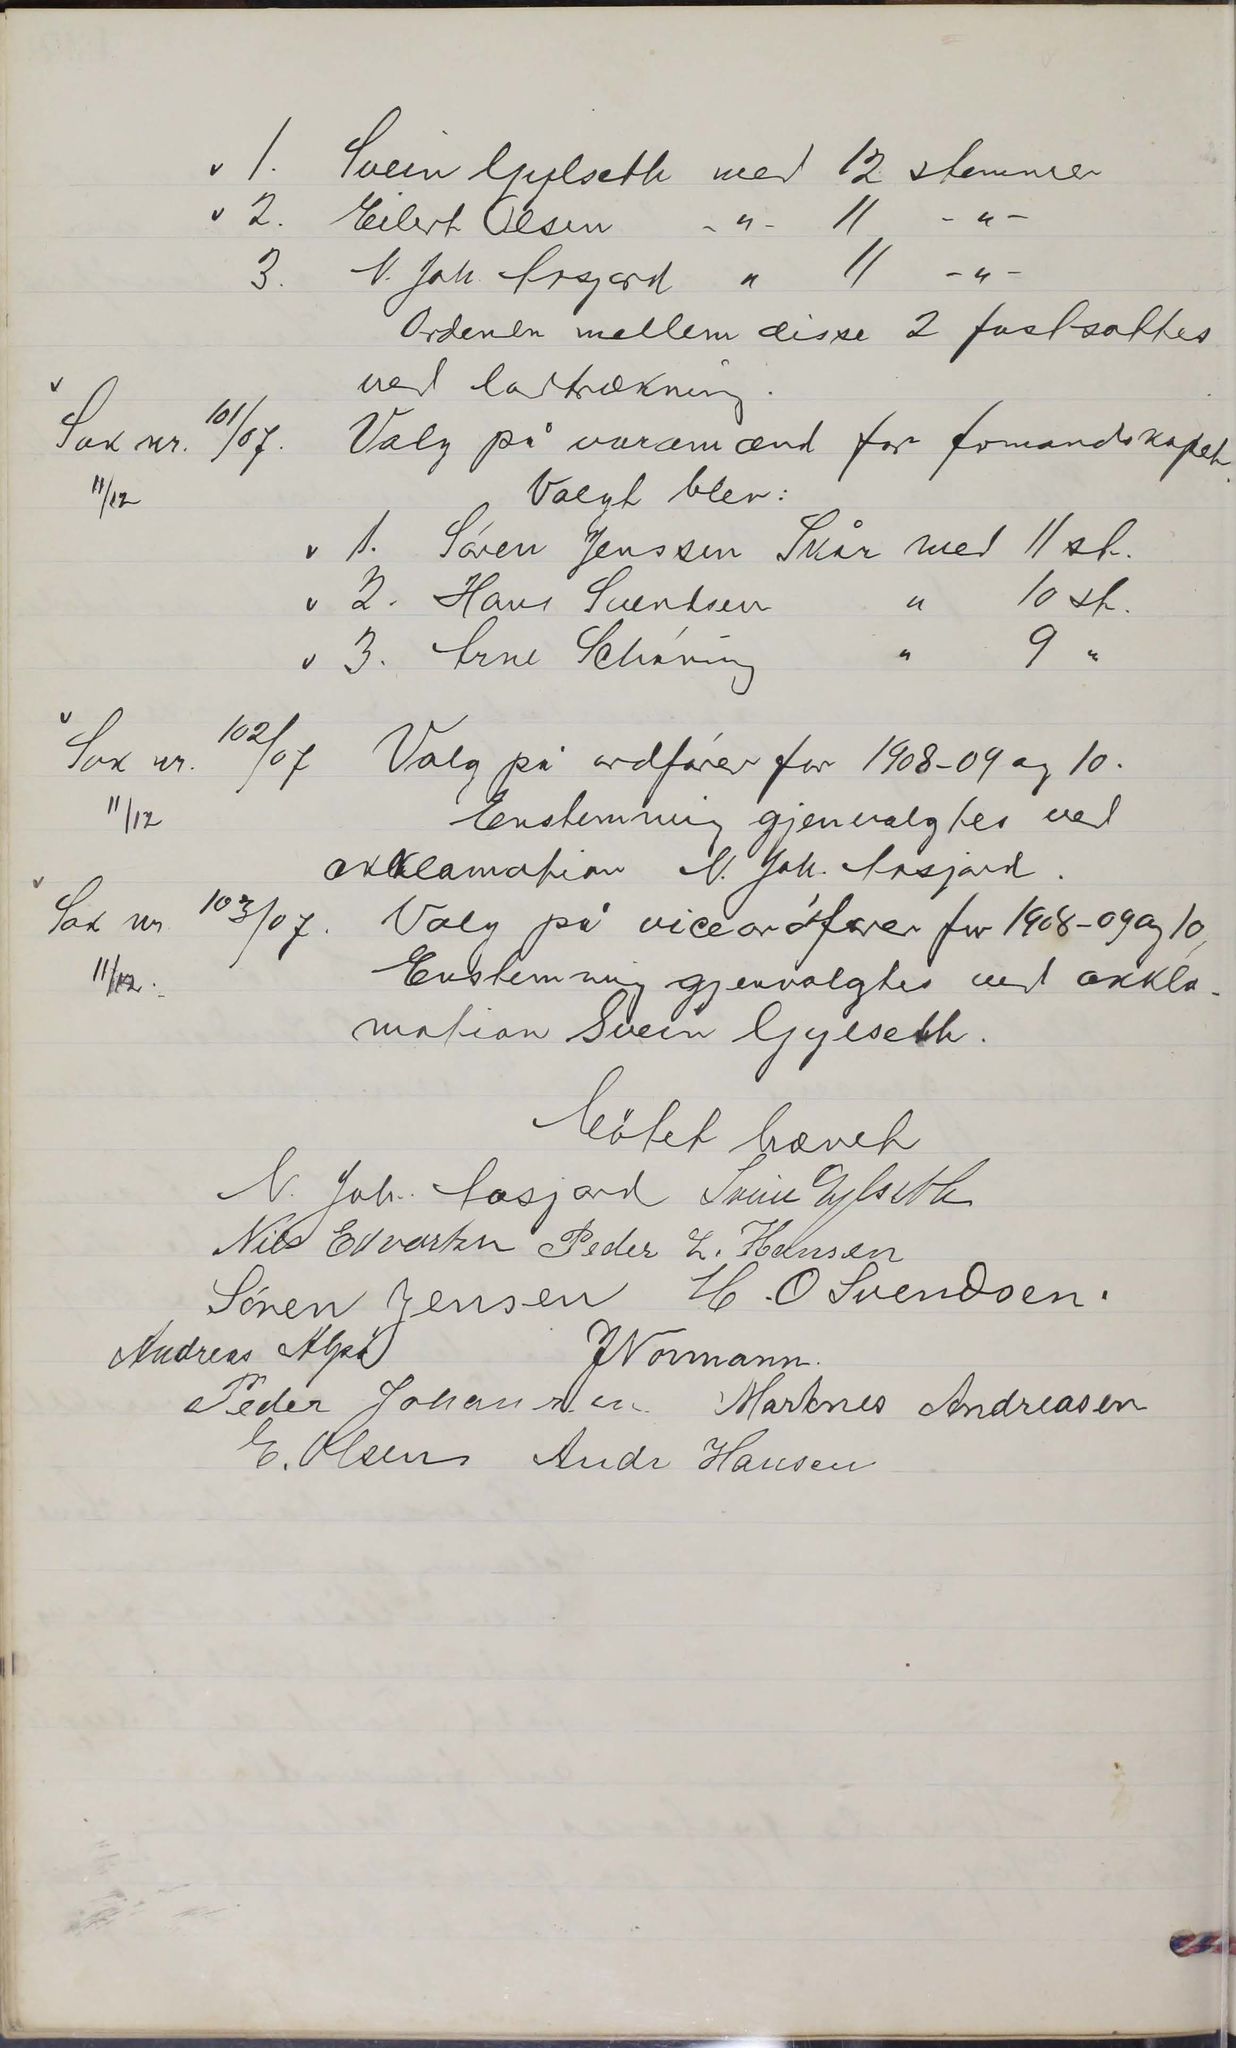 v 1. Svein Gylseth med 12 stemmer
v 2. Eilert Olsen -"- 11 -"-
3. N. Joh. Aasjord " 11 -"-
Ordenen mellem disse 2 fastsattes
ved lodtrækning.
v
Sak nr. 101/07. Valg på varamænd for formandskapet.
11/12 Valgt blev:
v 1. Søren Jenssen Skår med 11 st.
v 2. Hans Svendsen " 10 st.
v 3. Arne Schøning " 9 "
v
Sak nr. 102/07 Valg på ordfører for 1908-09 og 10.
11/12 Enstemmig gjenvalgtes ved
akklamation N. Joh. Aasjord.
v
Sak nr. 103/07. Valg på viceordfører for 1908-09 og 10,
11/12. Enstemmig gjenvalgtes ved akkla-
mation Svein Gylseth.
Mötet hævet
N. Joh. Aasjord Svein Gylseth
Nils Edvartsen Peder L. Hansen
Sören Jensen H. O Svendsen.
Andreas J Normann.
Peder Johansen Martines Andreasen
E. Olsen Andr Hansen